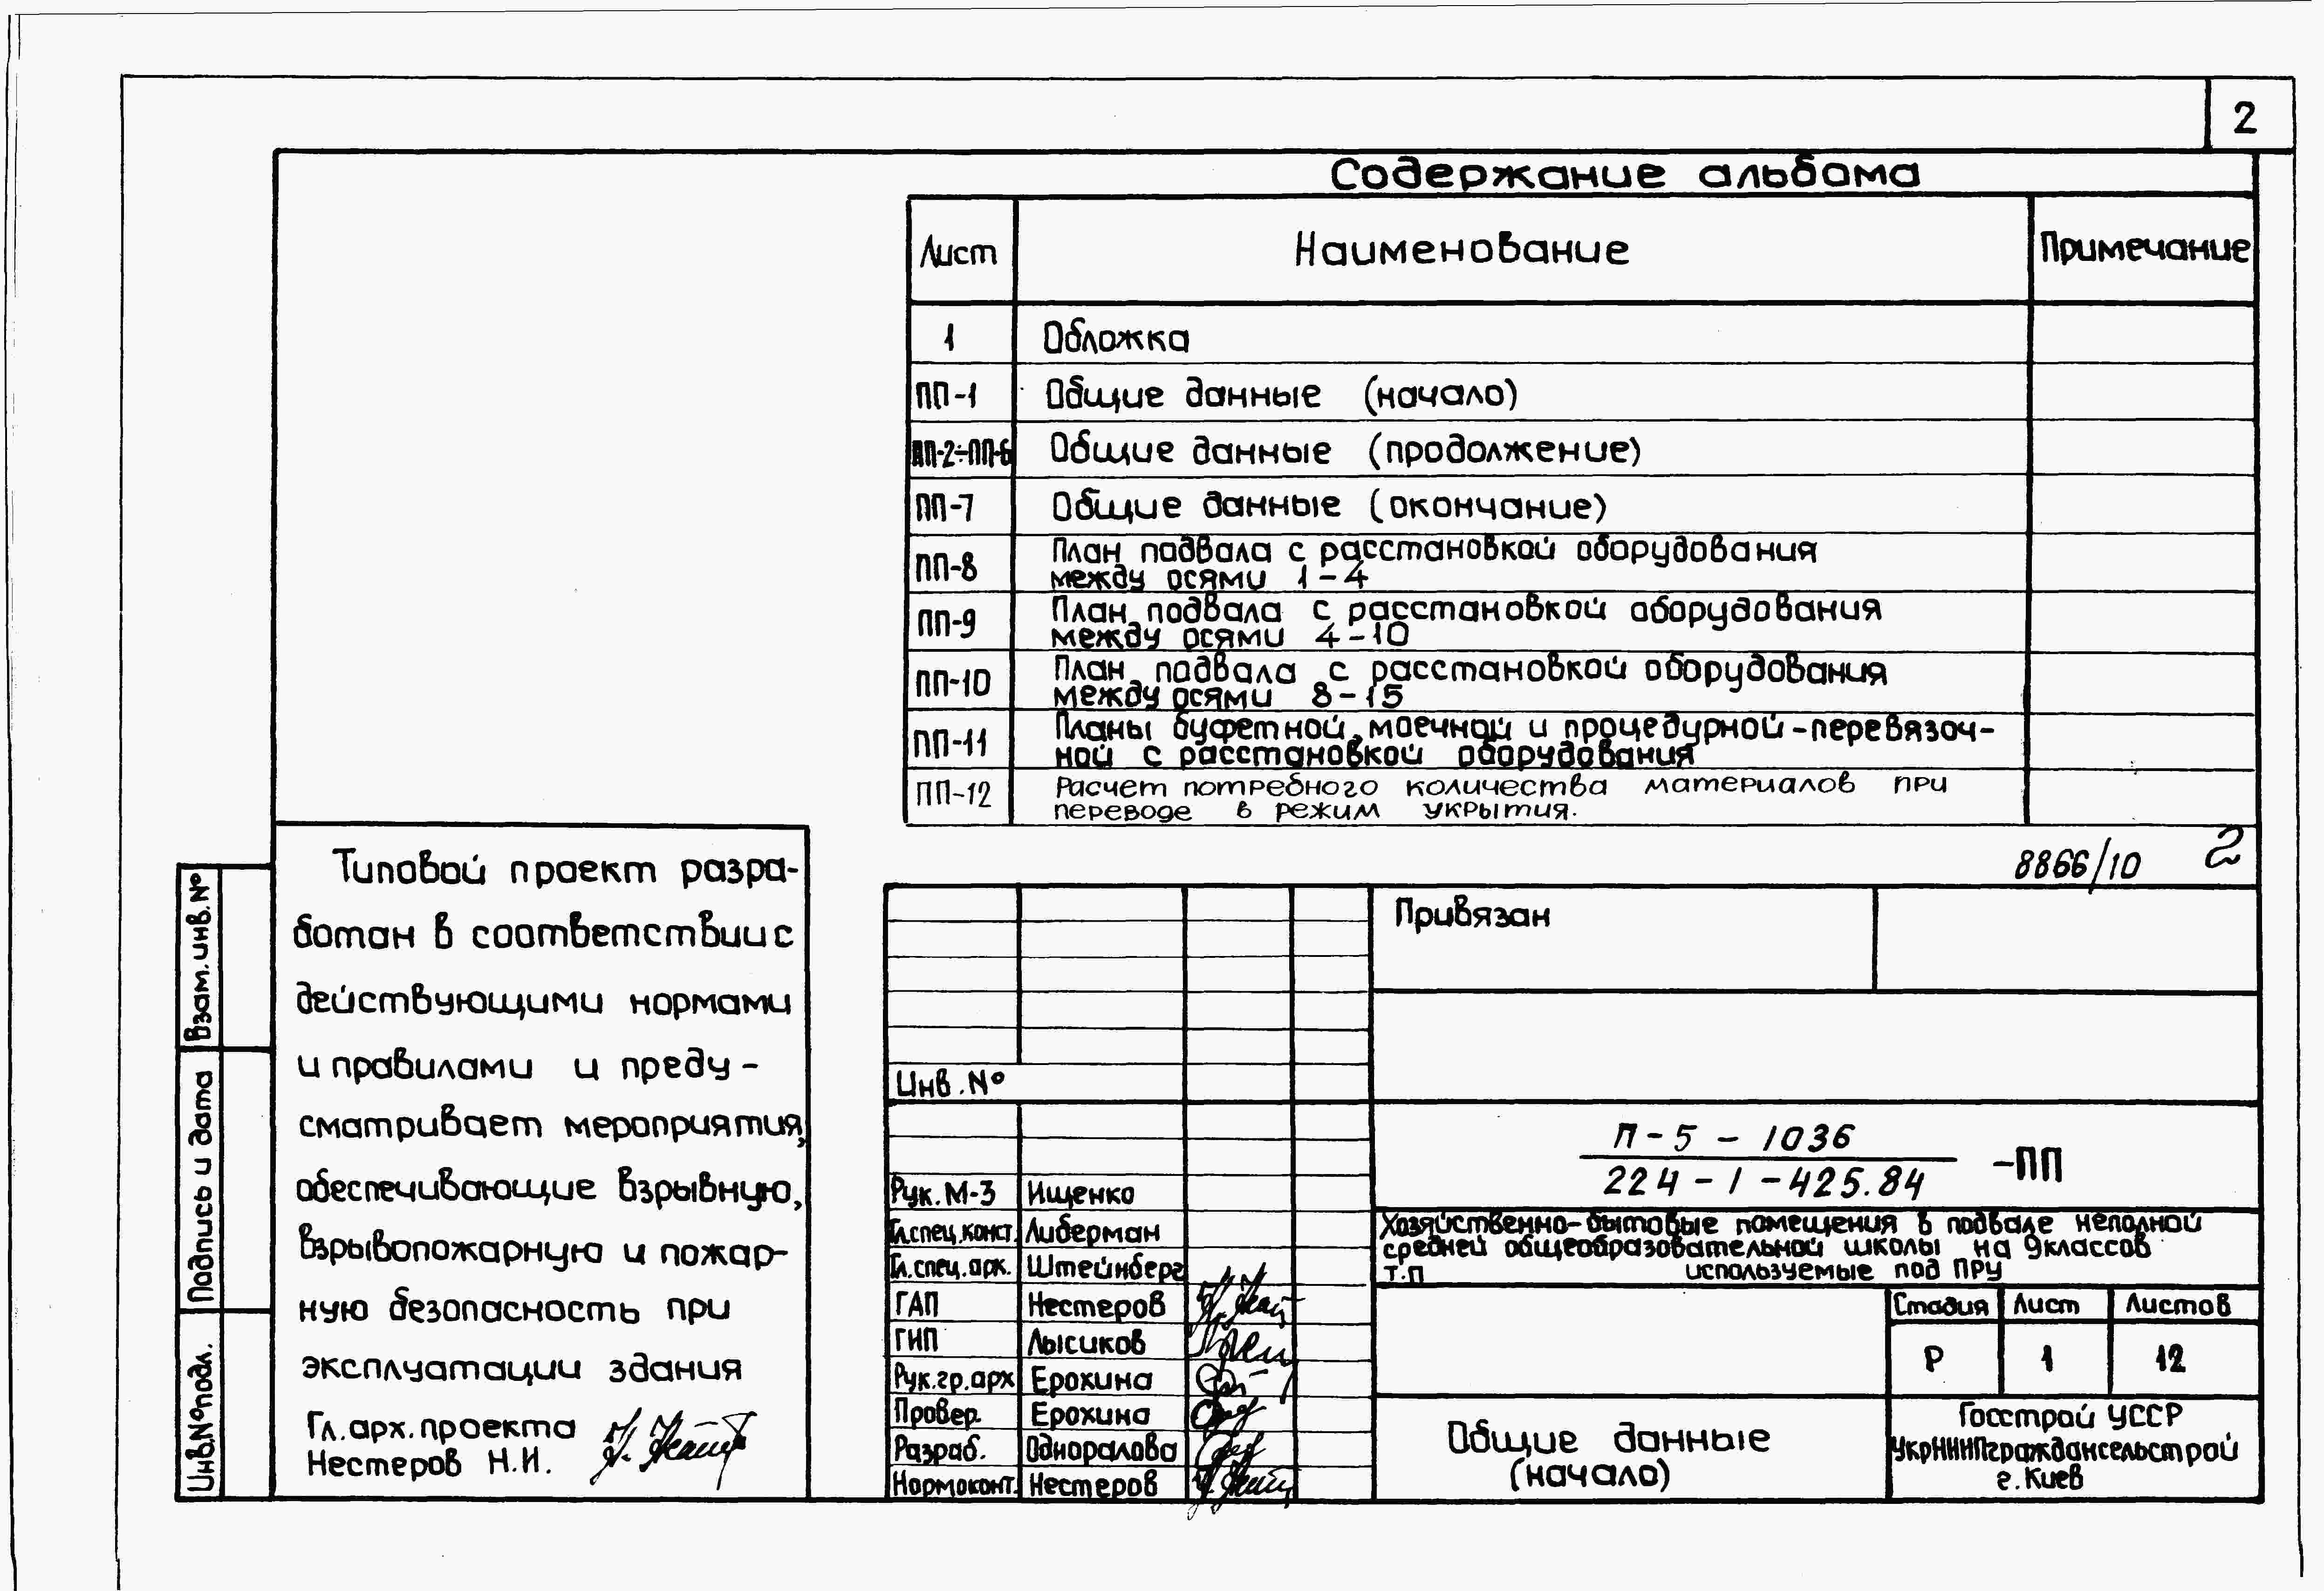 2
Содержание альбома
Лист Наименование Примечание
1 Обложка
ПП-1 Общие данные (начало)
ПП-2÷ПП-6 Общие данные (продолжение)
ПП-7 Общие данные (окончание)
ПП-8 План подвала с расстановкой оборудования
между осями 1-4
ПП-9 План подвала с расстановкой оборудования
между осями 4-10
ПП-10 План подвала с расстановкой оборудования
между осями 8-15
ПП-11 Планы буфетной, моечной и процедурной-перевязоч-
ной с расстановкой оборудования
ПП-12 Расчет потребного количества материалов при
переводе в режим укрытия.
8866/10 2
Типовой проект разра-
ботан в соответствии с
действующими нормами
и правилами и преду-
сматривает мероприятия,
обеспечивающие взрывную,
взрывопожарную и пожар-
ную безопасность при
эксплуатации здания
Гл. арх. проекта
Нестеров Н.И.
Взам. инв. №
Подпись и дата
Инв. № подл.
Привязан
Инв. №
П-5-1036
224-1-425.84
-ПП
Рук. М-3 Ищенко
Гл. спец. конст. Либерман
Гл. спец. арк. Штейнберг
ГАП Нестеров
ГИП Лысиков
Рук. гр. арх Ерохина
Провер. Ерохина
Разраб. Одноралова
Нормоконт. Нестеров
Хозяйственно-бытовые помещения в подвале неполной
средней общеобразовательной школы на 9 классов
т.п используемые под ПРУ
Стадия Лист Листов
Р 1 12
Общие данные
(начало)
Госстрой УССР
УкрНИИПграждансельстрой
г. Киев